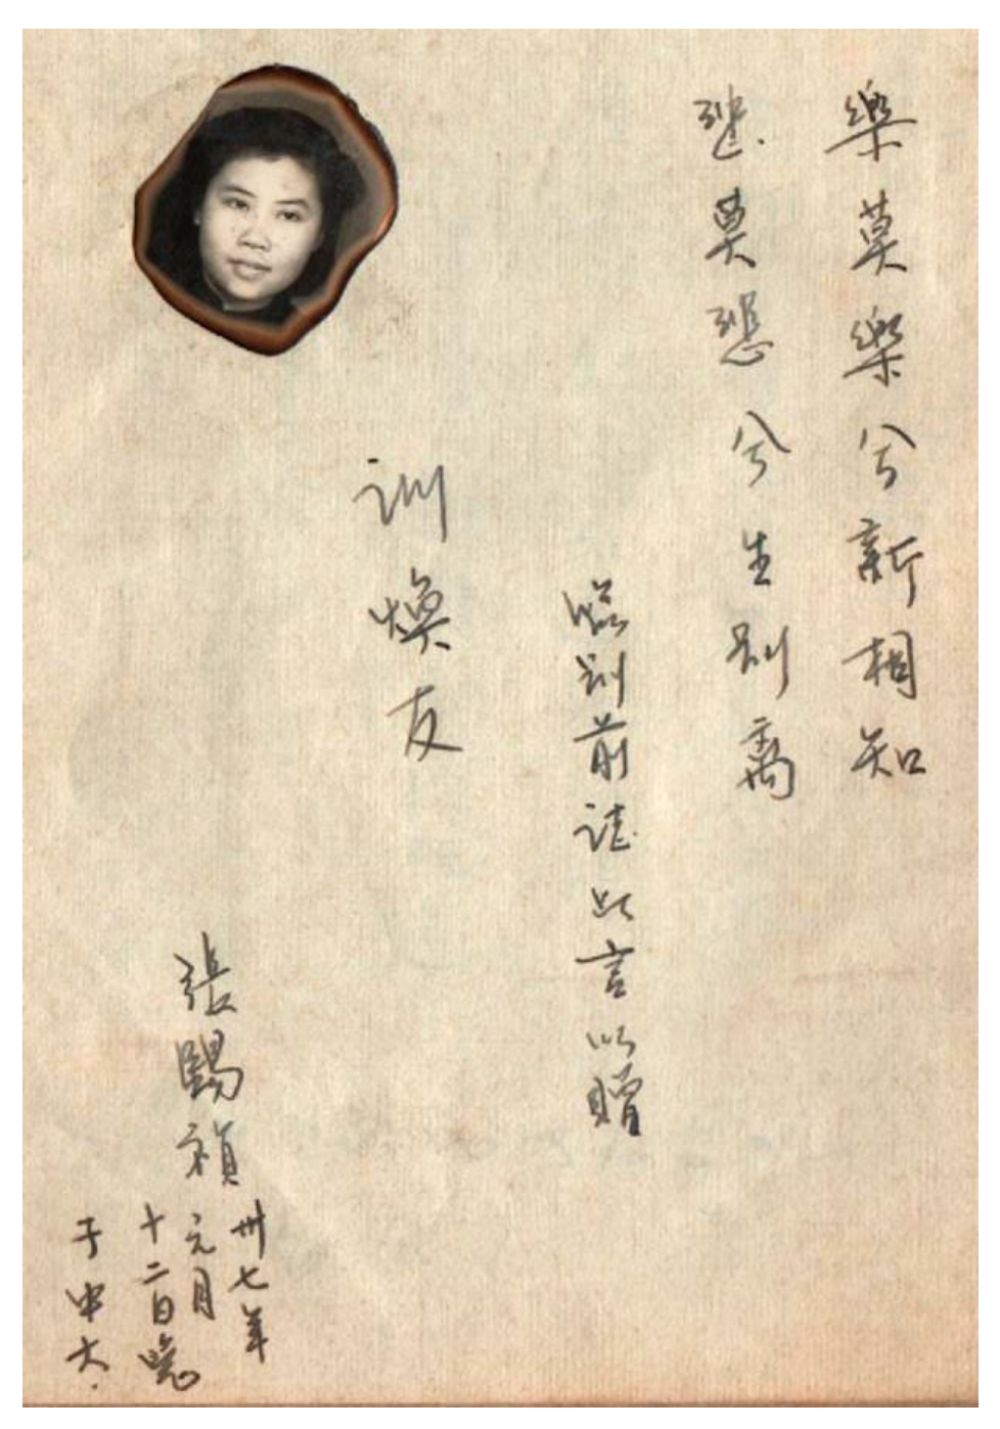 樂莫樂兮新相知
悲莫悲兮生別離
臨別前誌此言以贈
訓煥友
張賜禎
卅七年
元月
十二日晚
于中大.